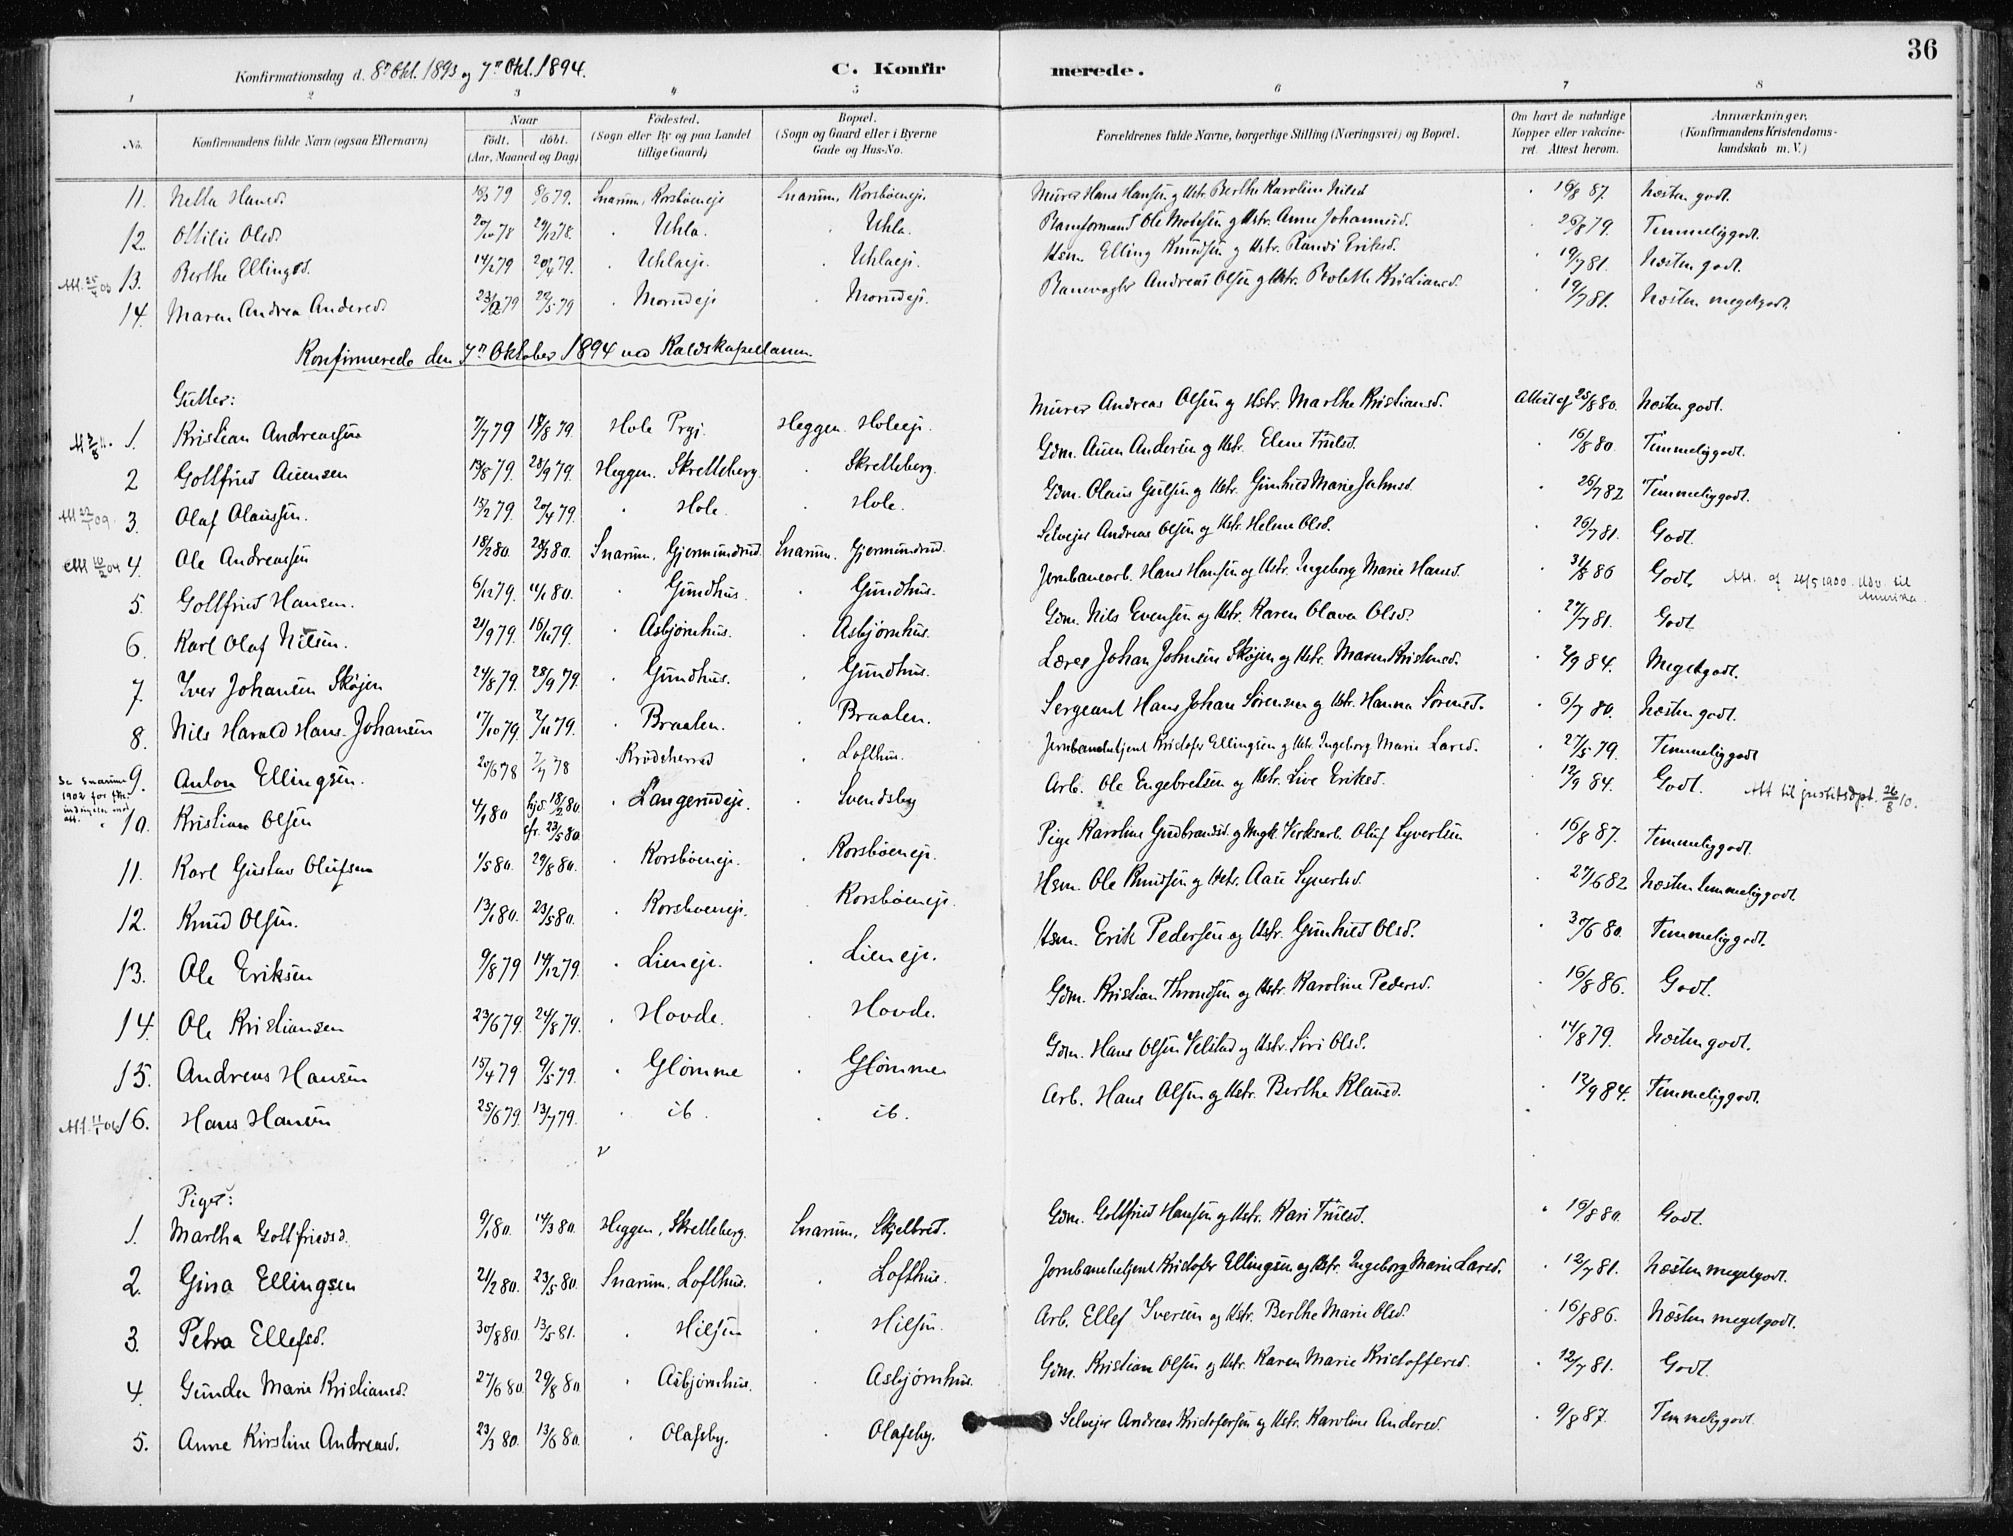 36
Konfirmationsdag d. 8de Okt. 1893 og 7de Okt. 1894. C. Konfirmerede.
1 2 3 4 5 6 7 8
No. Konfirmandens fulde Navn (ogsaa Efternavn) Naar födt. döbt. (Aar, Maaned og Dag) Födested. (Sogn eller By og paa Landet tillige Gaard) Bopæl. (Sogn og Gaard eller i Byerne Gade og Hus-No. Forældrenes fulde Navne, borgerlige Stilling (Næringsvei) og Bopæl. Om havt de naturlige Kopper eller vaccineret. Attest herom. Anmærkninger. (Konfirmandens Kristendomskundskab m. V.)
11. Nella Hansd. 18/3 79 8/6 79. Snarum, Korsbøeneje Snarum, Korsbøeneje. Murer Hans Hansen g Hstr. Berthe Karoline Nilsd. 16/8 87. Næsten godt.
12. Ottilie Olsd. 20/10 78 29/12 78. Uhla. Uhla. Baneformand Ole Mobesen g Hstr. Anne Johannesd. 26/8 79. Temmelig godt.
Att. 25/4 03 13. Berthe Ellingsd. 14/2 79 20/4 79. Uhlaeje. Uhlaeje. Hsm. Elling Knudsen g Hstr. Randi Eriksd. 19/7 81. Næsten godt.
14. Maren Andrea Andersd. 23/2 79 22/5 79 Morudeje Morudeje. Banevogter Andreas Olsen g Hstr. Bolette Kristiansd. 19/7 81. Næsten meget godt.
Konfirmerede den 7de Oktober 1894 ved Kaldskapellanen.
Gutter:
1. Kristian Andreassen 7/7 79 17/8 79. Hole Prgj. Heggen. Holeeje. Murer Andreas Olsen g Hstr. Marthe Kristiansd. Attest af 25/8 80. Næsten godt.
2 Gottfried Auensen 13/8 79. 28/9 79. Heggen. Skretteberg. Skretteberg. Gdm. Auen Andersen g Hstr. Elene Trulsd. 16/8 80. Temmelig godt.
Att 22/1 09. 3. Olaf Olaussen. 15/2 79. 20/4 79. Hole. Hole. Gdm. Olaus Gulsen g Hstr. Gunhild Marie Johnsd. 26/7 82 Temmelig godt.
Att 10/2 04 4. Ole Andreassen 18/2 80. 28/3 80. Snarum, Gjermundrud. Snarum. Gjermundrud. Selvejer Andreas Olsen og Hstr. Helene Olsd. 26/7 81. Godt.
5. Gottfried Hansen. 6/12 79. 11/1 80. Gundhus. Gundhus. Jernbanearb. Hans Hansen og Hstr. Ingeborg Marie Hansd. 31/8 86 Godt, Att. af 21/5 1900. Udv. til Amerika.
6. Karl Olaf Nilsen. 21/9 79. 16/11 79. Asbjørnhus. Asbjørnhus. Gdm. Nils Evensen og Hstr. Karen Olava Olsd. 27/7 81. Godt
7. Iver Johansen Skøjen 24/8 79. 28/9 79. Gundhus. Gundhus. Lærer Johan Johnsen Skøjen og Hstr. Maren Kristined. 2/9 84. Meget godt.
8. Nils Harald Hans Johansen 17/10 79. 2/11 79. Braaten. Braaten. Sergeant Hans Johan Sørensen og Hstr. Hanna Sørensd. 6/7 80. Næsten godt.
Se Snarum 1902 for 9. Anton Ellingsen. 20/6 78 7/7 78 Krødsherred Lofthus. Jernbanebetjent Kristofer Ellingsen g Hstr. Ingeborg Marie Larsd. 27/5 79. Temmelig godt
10. Kristian Olsen 4/1 80 hjd. 18/2 80. cfr. 23/5 80. Langerudeje. Svendsby Arb. Ole Engebretsen g Hstr. Live Eriksd. 12/9 84. Godt. Att til justitsdpt. 26/8 10.
11. Karl Gustav Olufsen 1/5 80. 29/8 80. Korsbøeneje. Korsbøeneje. Pige Karoline Gudbrandsd. g Ungk. Verksarb. Oluf Syvertsen 16/8 87. Temmelig godt.
12. Knud Olsen. 13/1 80. 23/5 80. Korsbøeneje. Korsbøeneje. Hsm. Ole Knudsen g Hstr. Aase Syvertsd. 27/6 82 Næsten temmelig godt.
13. Ole Eriksen 9/8 79 14/12 79. Lieneje. Lieneje. Hsm. Erik Pedersen og Hstr. Gunhild Olsd. 30/6 80. Temmelig godt.
14. Ole Kristiansen 23/6 79. 24/8 79. Hovde. Hovde. Gdm. Kristian Throndsen og Hstr. Karoline Pedersd. 16/8 86. Godt.
15. Andreas Hansen 15/4 79 9/5 79. Glomme Glomme Gdm. Hans Olsen Velstad og Hstr. Siri Olsd. 14/8 79. Næsten godt.
Att. 11/1 06 16. Hans Hansen 25/6 79. 13/7 79. ib. ib. Arb. Hans Olsen g Hstr. Berthe Klausd. 12/9 84. Temmelig godt.
Piger:
1. Martha Gottfriedsd. 9/1 80. 14/3 80. Heggen, Skretteberg. Snarum, Skjelbred. Gdm. Gottfried Hansen g Hstr. Kari Trulsd. 16/8 80. Godt.
2. Gina Ellingsen 21/2 80. 23/5 80. Snarum. Lofthus. Lofthus. Jernbanebetjent Kristofer Ellingsen og Hstr. Ingeborg Marie Larsd. 12/7 81. Næsten meget godt.
3. Petra Ellefsd. 30/8 80. 13/5 81. Hilsen Hilsen. Arb. Ellef Iversen og Hstr. Berthe Marie Olsd. 16/8 86. Næsten meget godt.
4. Gunda Marie Kristiansd. 27/6 80. 29/8 80 Asbjørnhus. Asbjørnhus. Gdm. Kristian Olsen og Hstr. Karen Marie Kristoffersd. 12/7 81. Godt.
5. Anne Kirstine Andreasd. 23/3 80. 13/6 80. Olafsby. Olafsby. Selvejer Andreas Kristofersen og Hstr. Karoline Andersd. 9/8 87. Temmelig godt.